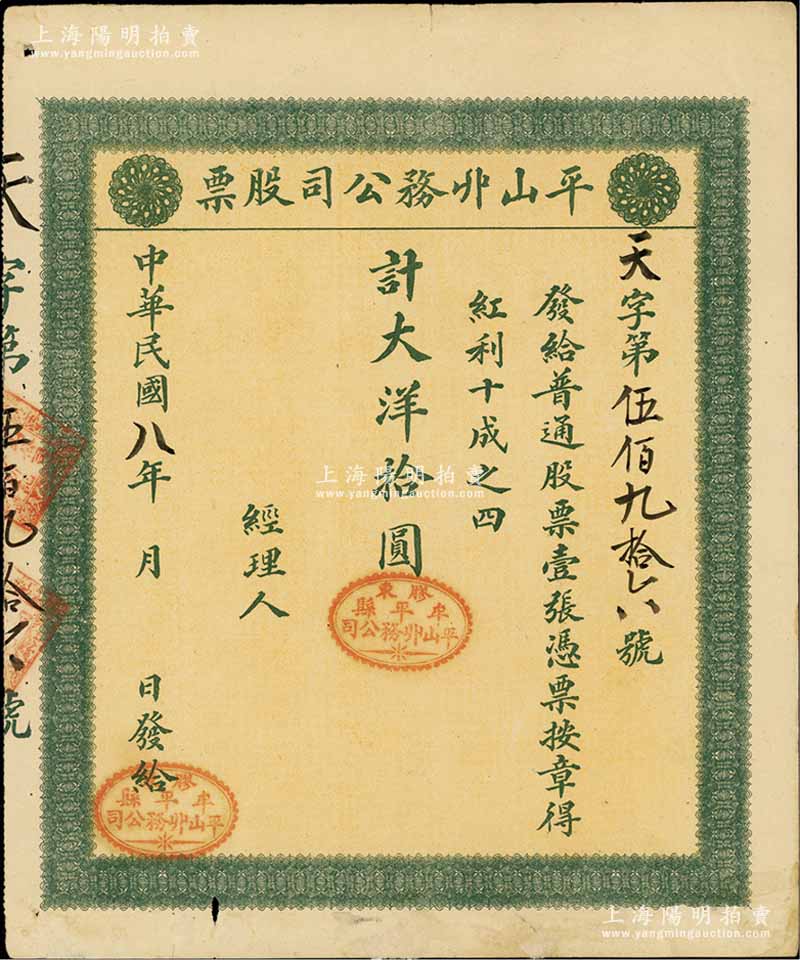 上海陽明拍賣
www.yangmingauction.com
平山丱務公司股票
天字第伍佰九拾六號
發給普通股票壹張憑票按章得
紅利十成之四
計大洋拾圓
經理人
中華民國八年 月 日發給
膠東
牟平縣
平山丱務公司
膠東
牟平縣
平山丱務公司
天字第伍佰九拾六號
上海陽明拍賣
www.yangmingauction.com
上海陽明拍賣
www.yangmingauction.com